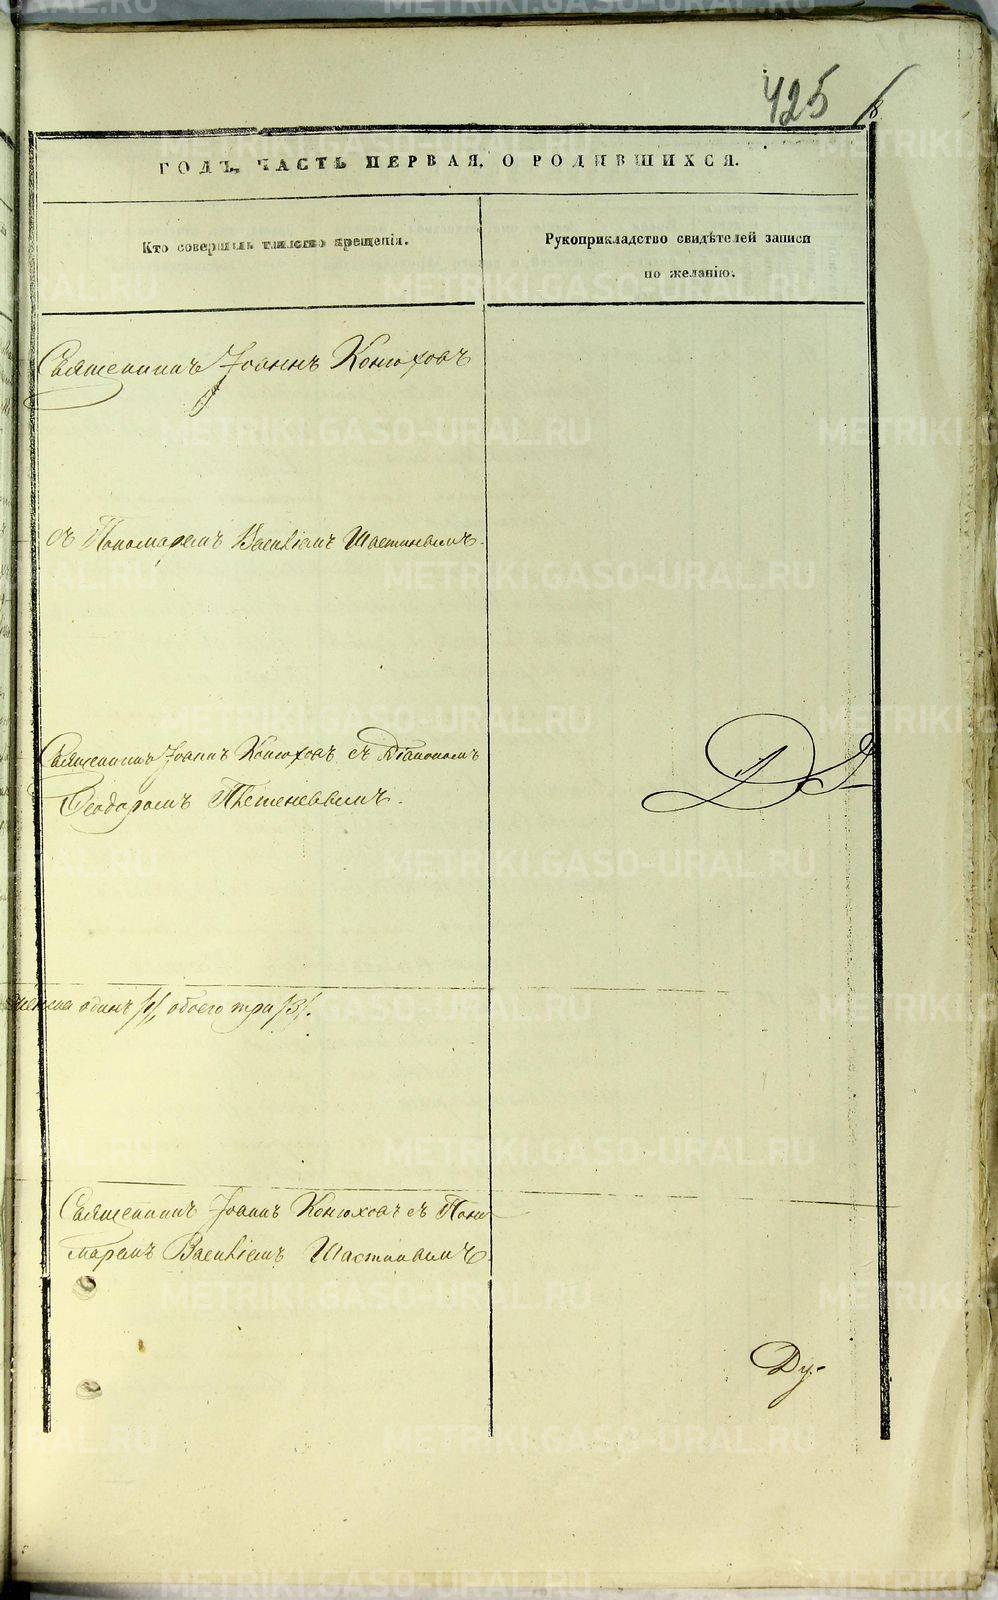 425
ГОДЪ, ЧАСТЬ ПЕРВАЯ, О РОДИВШИХСЯ.
Кто совершалъ таинство крещенія.
Рукоприкладство свидѣтелей записи
по желанію.
Священникъ Іоаннъ Конюховъ
съ Пономаремъ Василіемъ Шастинымъ.
Священникъ Іоаннъ Конюховъ съ Діакономъ
Ѳеодоромъ
женска одинъ /1/, обоего три /3/.
Священникъ Іоаннъ Конюховъ съ Поно
маремъ Василіемъ Шастинымъ.
Ду-
METRIKI.GASO-URAL.RU